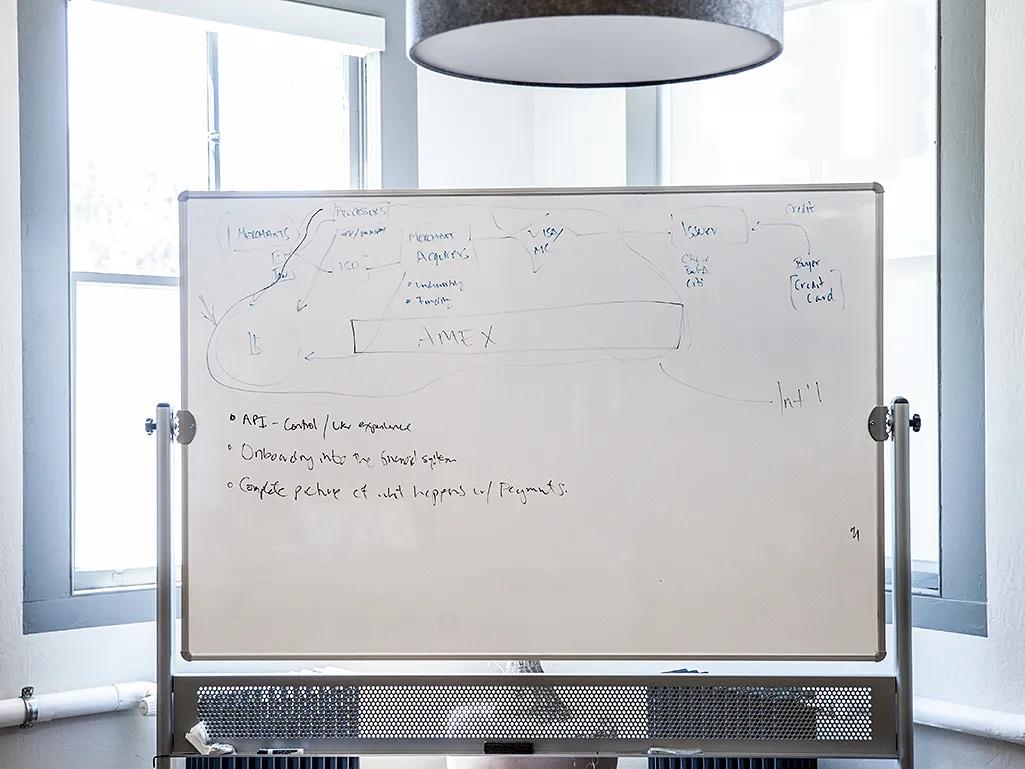 MERCHANTS
PROCESSORS
ISO
MERCHANT
Acquirers
• Underwriting
• Funding
VISA/
MC
Issuer
Chase
BofA
Citi
Credit
Buyer
Credit
Card
AMEX
Int'l
• API - Control / User experience
• Onboarding into the financial system
• Complete picture of what happens w/ Payments.